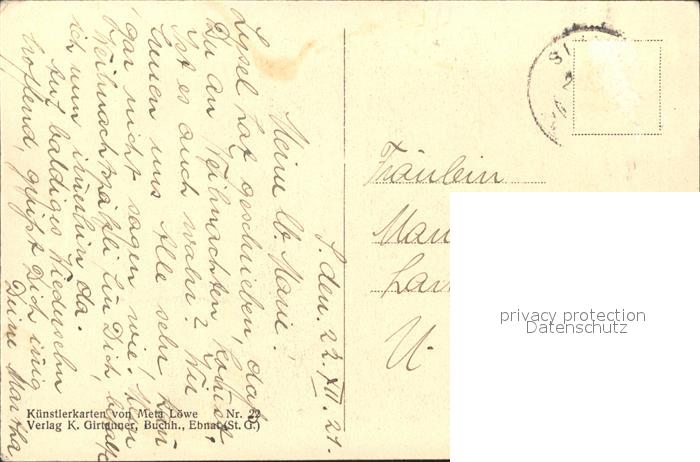 S. den. 22. XII. 21.
Meine lb. Marie!
Lysel hat geschrieben, daß
Du an Weihnachten kommst,
Ist es auch wahr? Wir
freuen uns Alle sehr, kann
gar nicht sagen wie!
Weihnachts für Dich,
ich nun da.
Auf baldiges Wiedersehn
hoffend, grüßt Dich innig
Deine Martha.
Fräulein
U.
Künstlerkarten von Meta Löwe Nr. 22
Verlag K. Girtanner, Buchh., Ebnat (St. G.)
privacy protection
Datenschutz